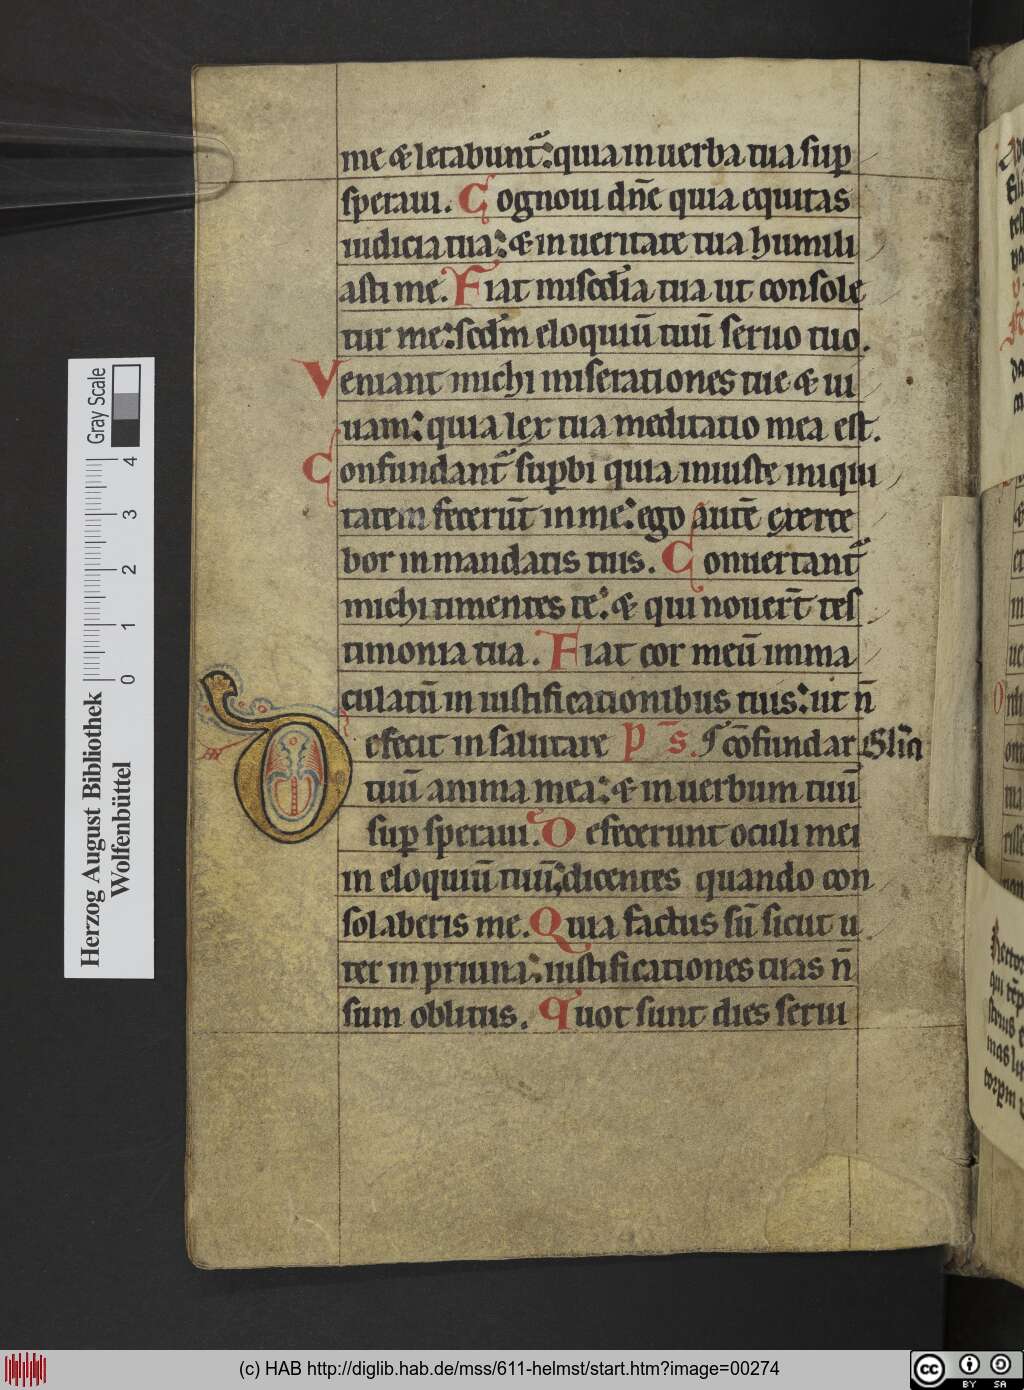 me & letabunt᷑: quia in uerba tua sup̱
speraui. Cognoui dn̄e quia equitas
iudicia tua: & in ueritate tua humili
asti me. Fiat misc̄dia tua ut console
tur me: scd̄m eloquiū tuū seruo tuo.
Veniant michi miserationes tue & ui
uam: quia lex tua meditatio mea est.
Confundant᷑ sup̱bi quia iniuste iniqui
tatem fecerūt in me: ego autē exerce
bor in mandatis tuis. Conuertant᷑
michi timentes te: & qui nouer̄t tes
timonia tua. Fiat cor meū imma
culatū in iustificationibus tuis: ut n̄
Defecit in salutare p̄s. cōfundar
tuū anima mea: & in uerbum tuū
sup̱ speraui. Defecerunt oculi mei
in eloquiū tuū: dicentes quando con
solaberis me. Quia factus sū sicut u
ter in pruina: iustificationes tuas n̄
sum oblitus. Quot sunt dies serui
Gray Scale
0 1 2 3 4
Herzog August Bibliothek
Wolfenbüttel
(c) HAB http://diglib.hab.de/mss/611-helmst/start.htm?image=00274
cc BY SA